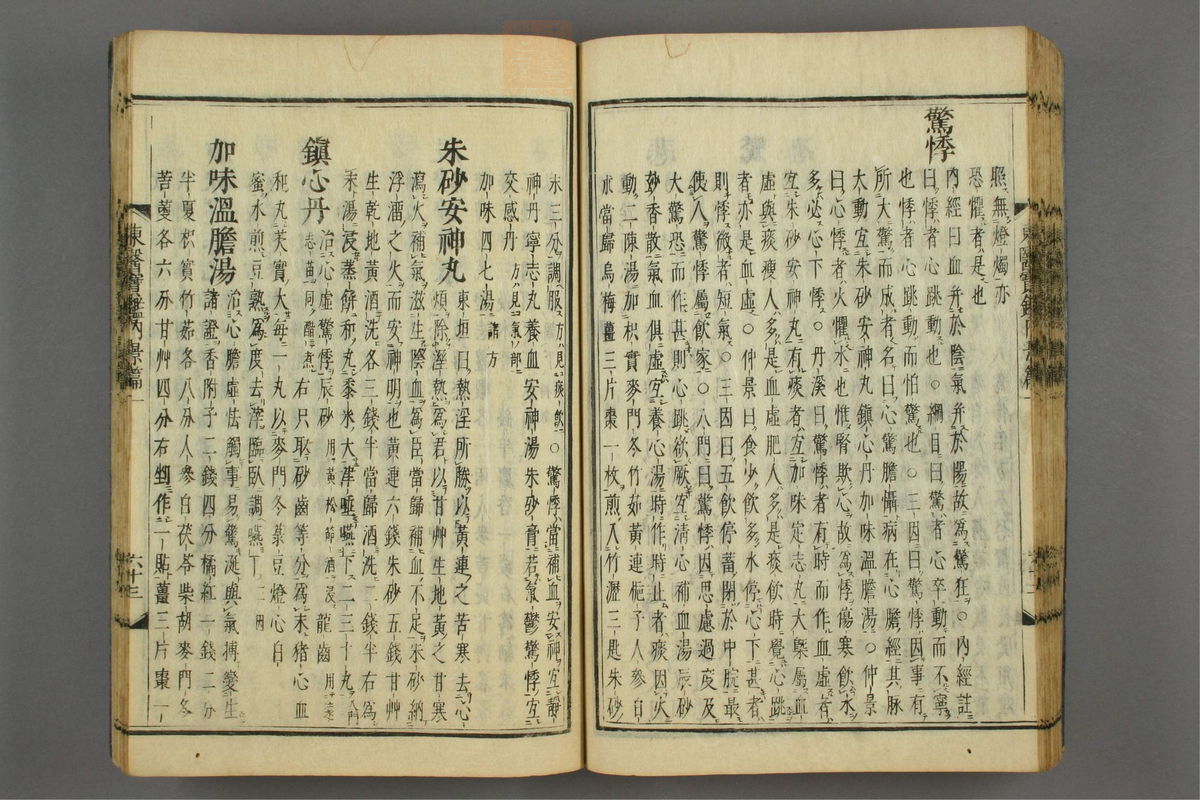 照無燈燭亦
恐懼者是也
驚悸
內經曰血并於陰氣并於陽故爲驚狂○內經註
曰悸者心跳動也○綱目曰驚者心卒動而不寧
也悸者心跳動而怕驚也○三因曰驚悸因事有
所大驚而成者名曰心驚膽懾病在心膽經其脉
大動宜朱砂安神丸鎭心丹加味溫膽湯○仲景
曰心悸者火懼水也惟腎欺心故爲悸傷寒飮水
多必心下悸○丹溪曰驚悸者有時而作血虛者
宜朱砂安神丸有痰者宜加味定志丸大槩屬血
虛與痰瘦人多是血虛肥人多是痰飮時覺心跳
者亦是血虛○仲景曰食少飮多水停心下甚者
則悸微者短氣○三因曰五飮停蓄閉於中脘最
使人驚悸屬飮家○入門曰驚悸因思慮過度及
大驚恐而作甚則心跳欲厥宜淸心補血湯辰砂
妙香散氣血俱虛宜養心湯時作時止者痰因火
動二陳湯加枳實麥門冬竹茹黃連梔子人參白
朮當歸烏梅薑三片棗一枚煎入竹瀝三匙朱砂
末三分調服方見痰飮○驚悸當補血安神宜靜
神丹寧志丸養血安神湯朱砂膏若氣鬱驚悸宜
交感丹方見氣部
加味四七湯諸方
朱砂安神丸 東垣曰熱淫所勝以黃連之苦寒去心
煩除濕熱爲君以甘艸生地黃之甘寒
瀉火補氣滋生陰血爲臣當歸補血不足朱砂納
浮溜之火而安神明也黃連六錢朱砂五錢甘艸
生乾地黃酒洗各三錢半當歸酒洗二錢半右爲
末湯浸蒸餠和丸黍米大津唾嚥下二三十丸入門
鎭心丹 治心虛驚悸辰砂用黃松節酒浸龍齒用遠
志苗同醋煮右只取砂齒等分爲末猪心血
和丸芡實大每一丸以麥門冬菉豆燈心白
蜜水煎豆熟爲度去滓臨臥調嚥下
加味溫膽湯 治心膽虛怯觸事易驚涎與氣搏變生
諸證香附子二錢四分橘紅一錢二分
半夏枳實竹茹各八分人參白茯苓柴胡麥門冬
各六分甘艸四分右剉作二貼薑三片棗一
東醫寶鑑內景篇一
六十三